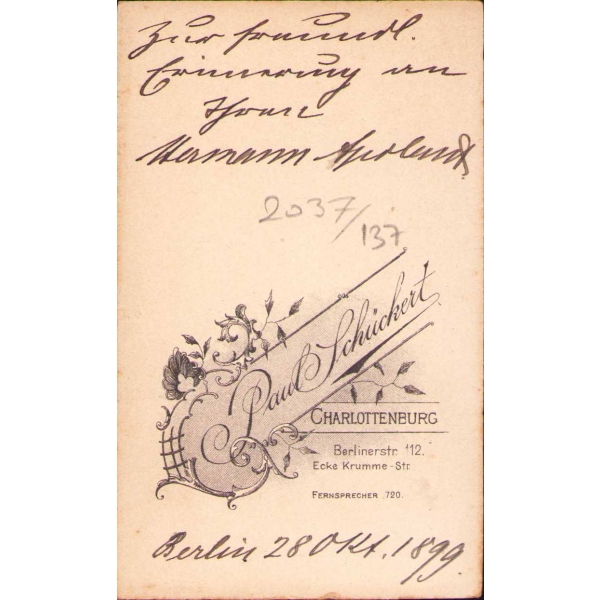 Zur freundl.
Erinnerung an
Ihren
Hermann
2037/137
Paul Schückert
CHARLOTTENBURG
Berlinerstr. 112.
Ecke Krumme-Str.
FERNSPRECHER 720.
Berlin 28 Okt. 1899.